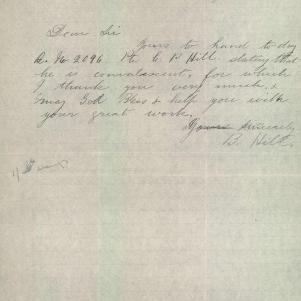 Dear Sir
Yours to hand to-day
No 2096 Pte C. B. Hill stating that
he is convalescent, for which
I thank you very much, &
may God Bless & help you with
your great work,
Yours Sincerely
B. Hill.